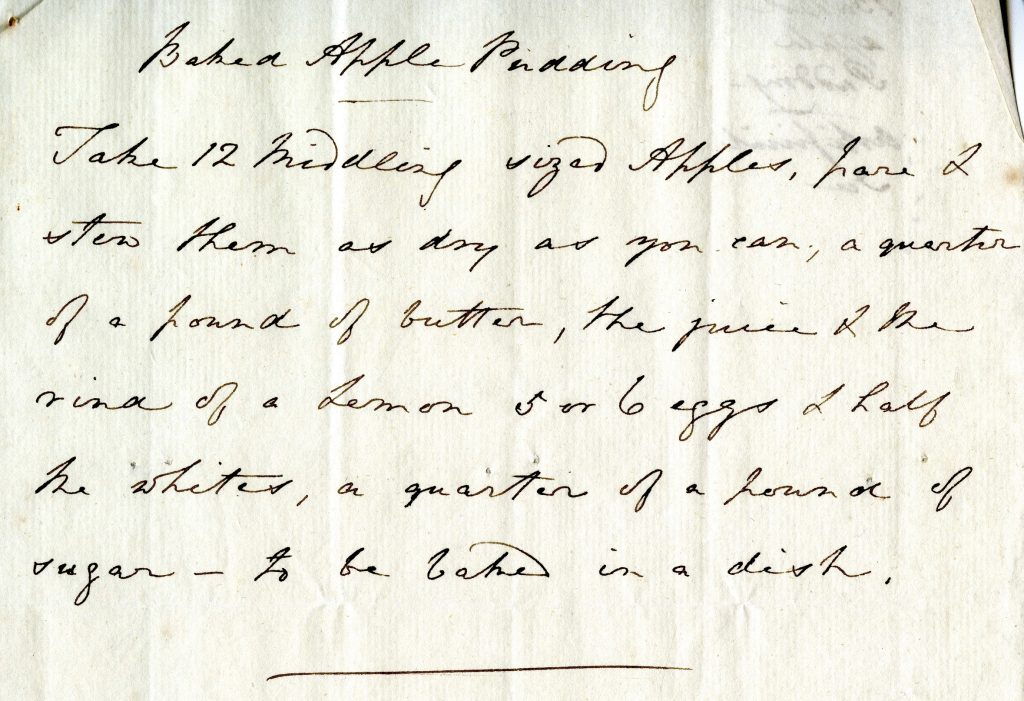 Baked Apple Pudding
Take 12 Middling sized Apples, pare &
stew them as dry as you can, a quarter
of a pound of butter, the juice & the
rind of a Lemon 5 or 6 eggs & half
the whites, a quarter of a pound of
sugar – to be baked in a dish.